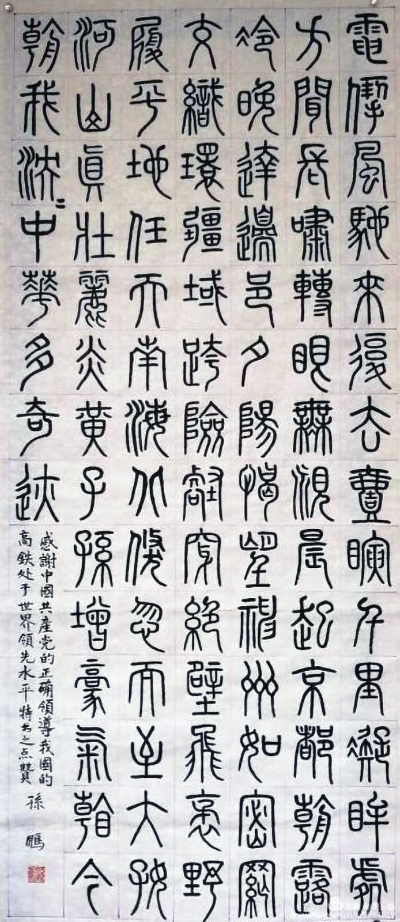 電掣風馳來復去壹瞬千里凝眸處
方聞長嘯轉眼無視晨起京都朝露
冷晚達邊邑夕陽望神州如密網
交織環疆域跨險壑穿絕壁飛野
履平地任天南海北倏忽而至大好
河山真壯麗炎黃子孫增豪氣看今
朝我泱泱中華多奇跡
感謝中國共產党的正确領導我國的
高鉄处于世界領先水平特书之点贊
孫鵬